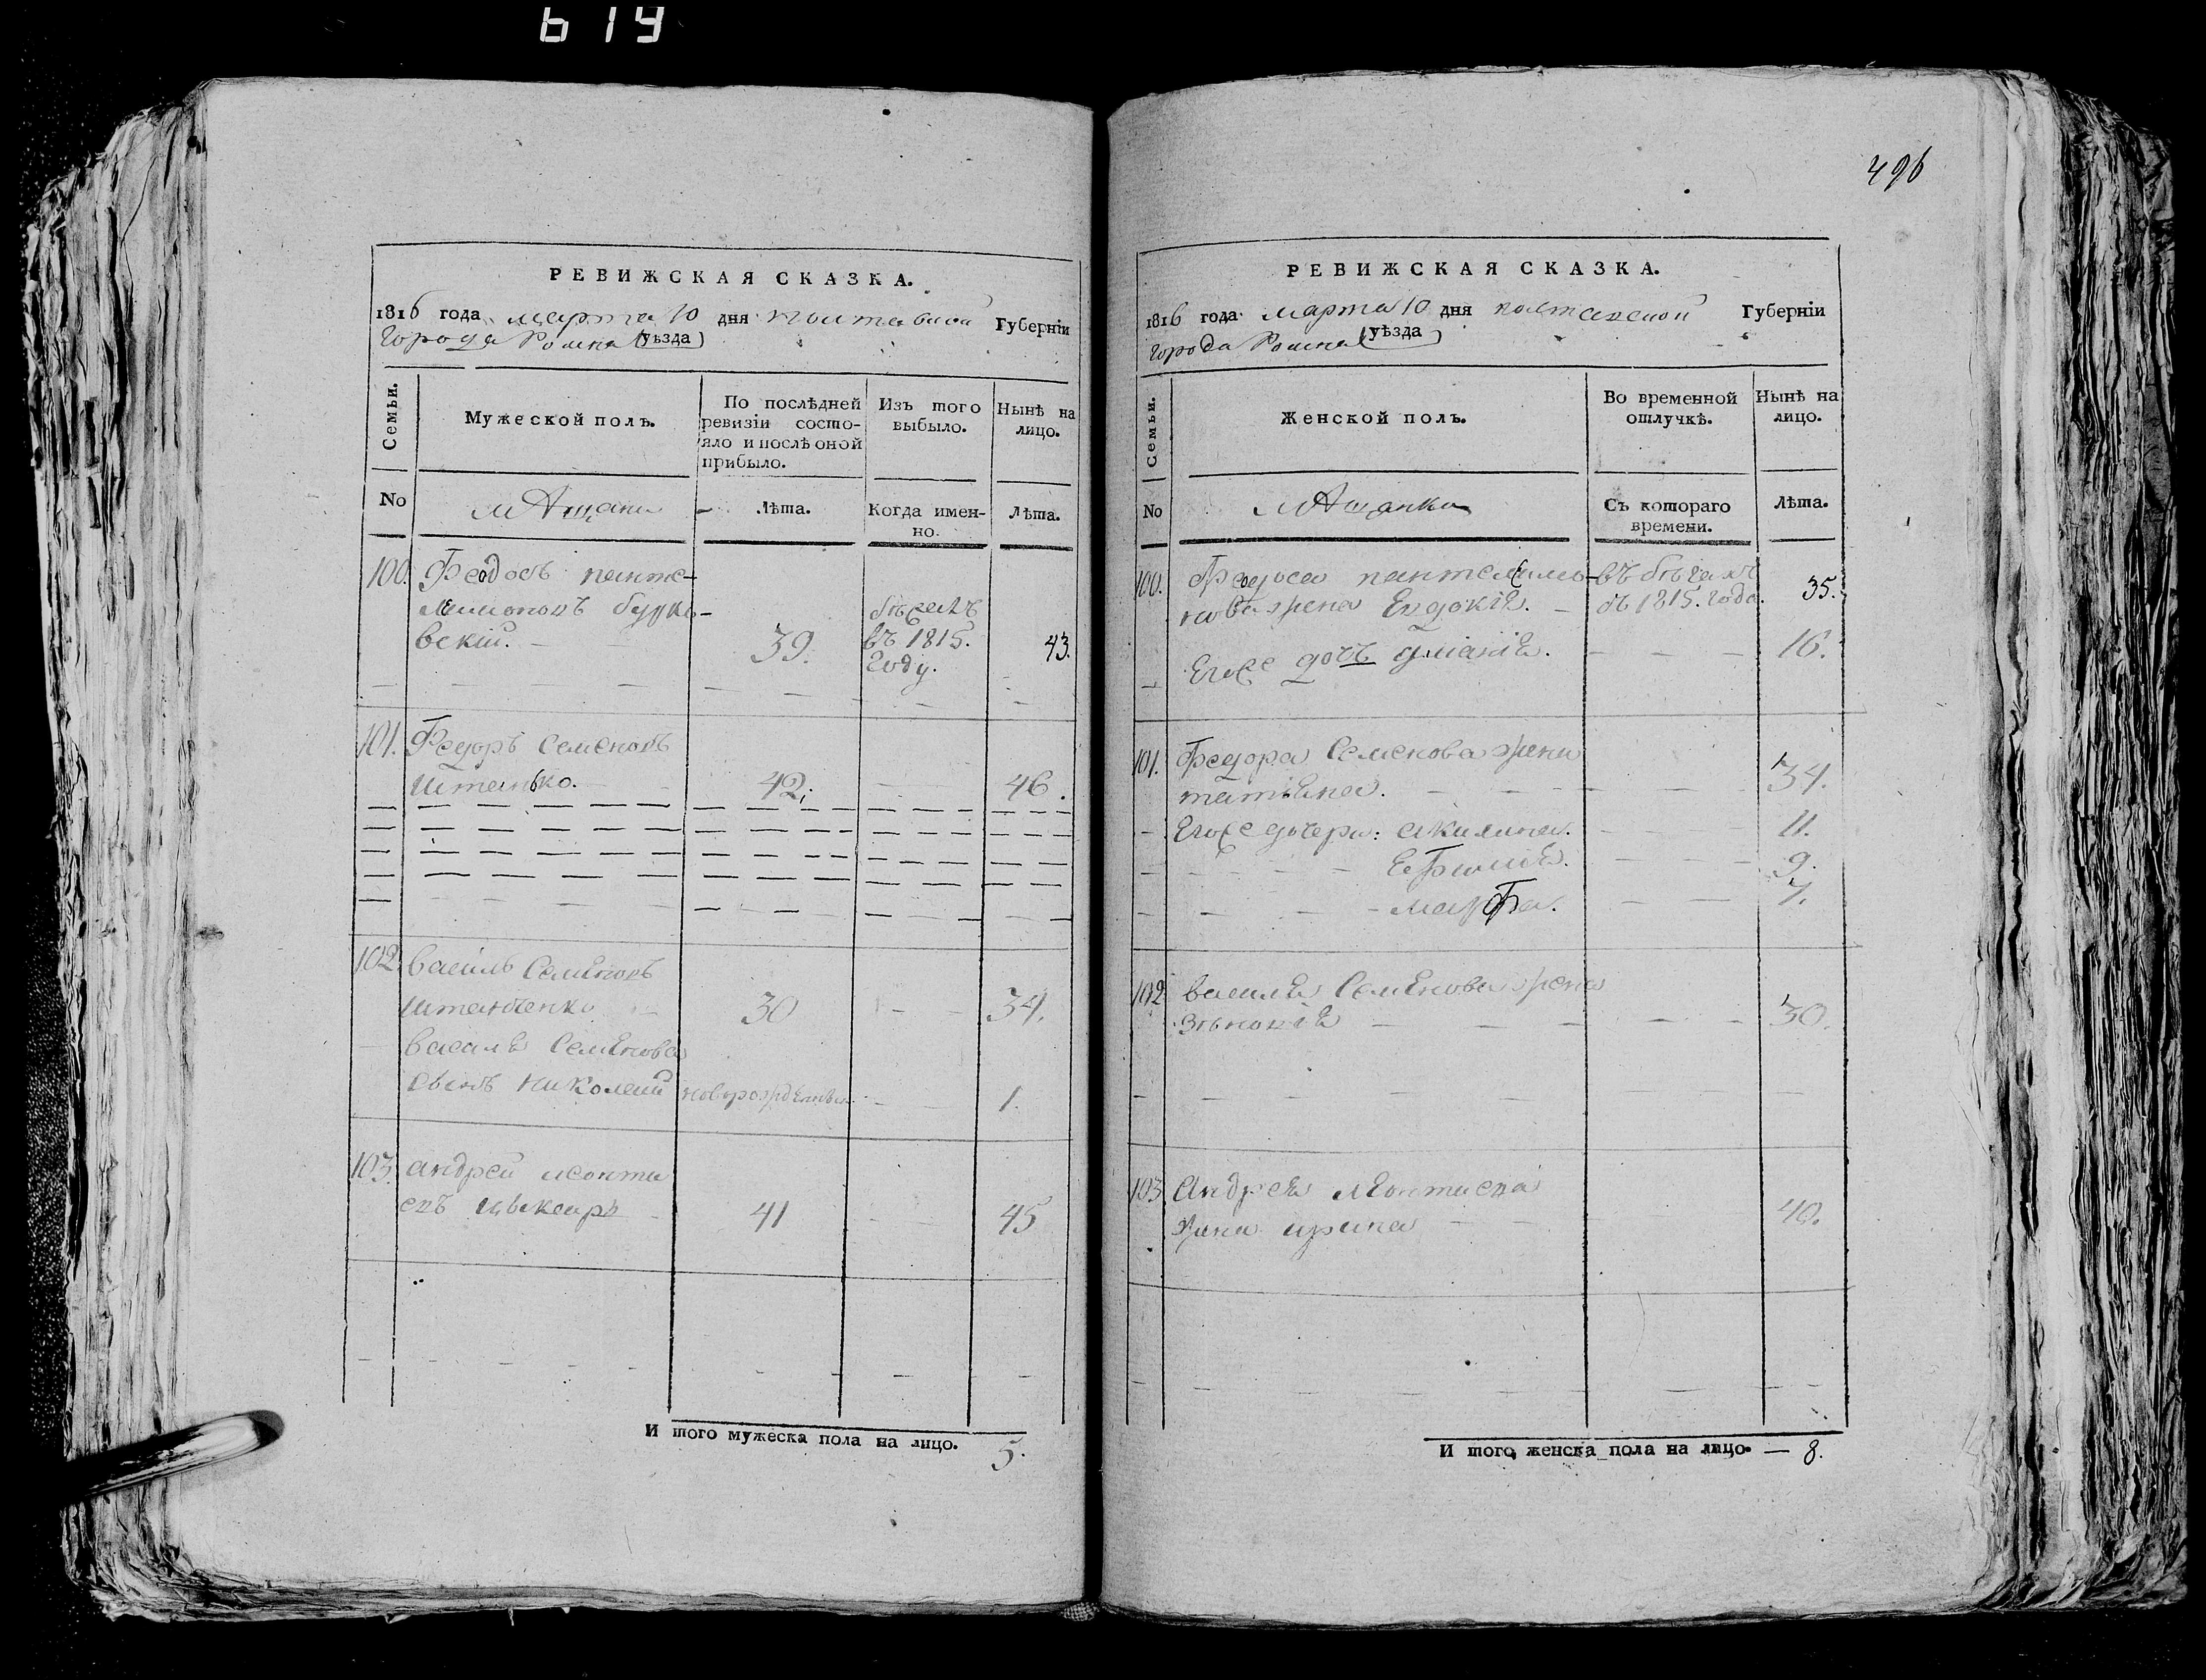 619
РЕВИЖСКАЯ СКАЗКА.
1816 года марта 10 дня полтавской Губерніи
Города Ромна (уѣзда)
Семьи.
Мужеской полъ.
По послѣдней ревизіи состояло и послѣ оной прибыло.
Изъ того выбыло.
Нынѣ на лицо.
No
мѣщане
Лѣта.
Когда именно.
Лѣта.
100. Феодосъ панте-
леимоновъ
вскій. 39. бѣжалъ въ 1815. году. 43.
101. Федоръ Семеновъ
Штанько. 42. 46.
102. василь Семеновъ
Штанченко 30 34.
василя Семенова
сынъ николай новорожденный 1.
103. андрей леонти
евъ 41 45
И того мужеска пола на лицо. 5.
496
РЕВИЖСКАЯ СКАЗКА.
1816 года марта 10 дня полтавской Губерніи
Города Ромна (уѣзда)
Семьи.
Женской полъ.
Во временной отлучкѣ.
Нынѣ на лицо.
No
мѣщанки
Съ котораго времени.
Лѣта.
100. Феодоса пантелеимо-
нова жена Евдокія. въ бѣгахъ съ 1815. года. 35.
Егоже дочь 16.
101. Федора Семенова жена
татіяна. 34.
Егоже дочери: акилина. 11.
Ефимія. 9.
марфа. 7.
102 василя Семенова жена
30.
103 Андрея леонтиева
жена ирина 40.
И того женска пола на лицо. — 8.